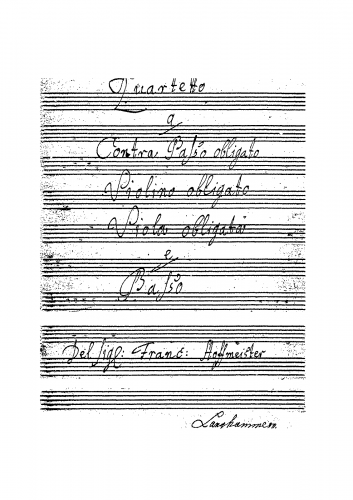 Quartetto
a
Contra Passo obligato
Violino obligato
Viola obligata
e
Basso
Del Sigl: Franc: Hoffmeister